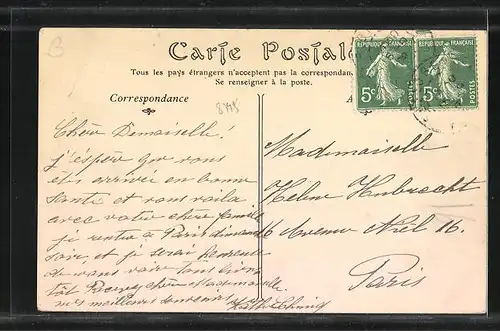 B
Carte Postale
Tous les pays étrangers n'acceptent pas la correspondan
Se renseigner à la poste.
RÉPUBLIQUE FRANÇAISE
5c
POSTES
RÉPUBLIQUE FRANÇAISE
5c
POSTES
Correspondance
A
Chère Demoiselle!
j'éspère que vous
êts arrivée en bonne
Santé et vous voila
avec votre chère famille
je rentre à Paris dimanche
soir et je serai heureuse
de vous voir tout bien
tôt Recevez chère Mademoiselle
mes meilleurs souvenirs
Mademoiselle
Hélène Hubrecht
16 Avenue Niel 16.
Paris